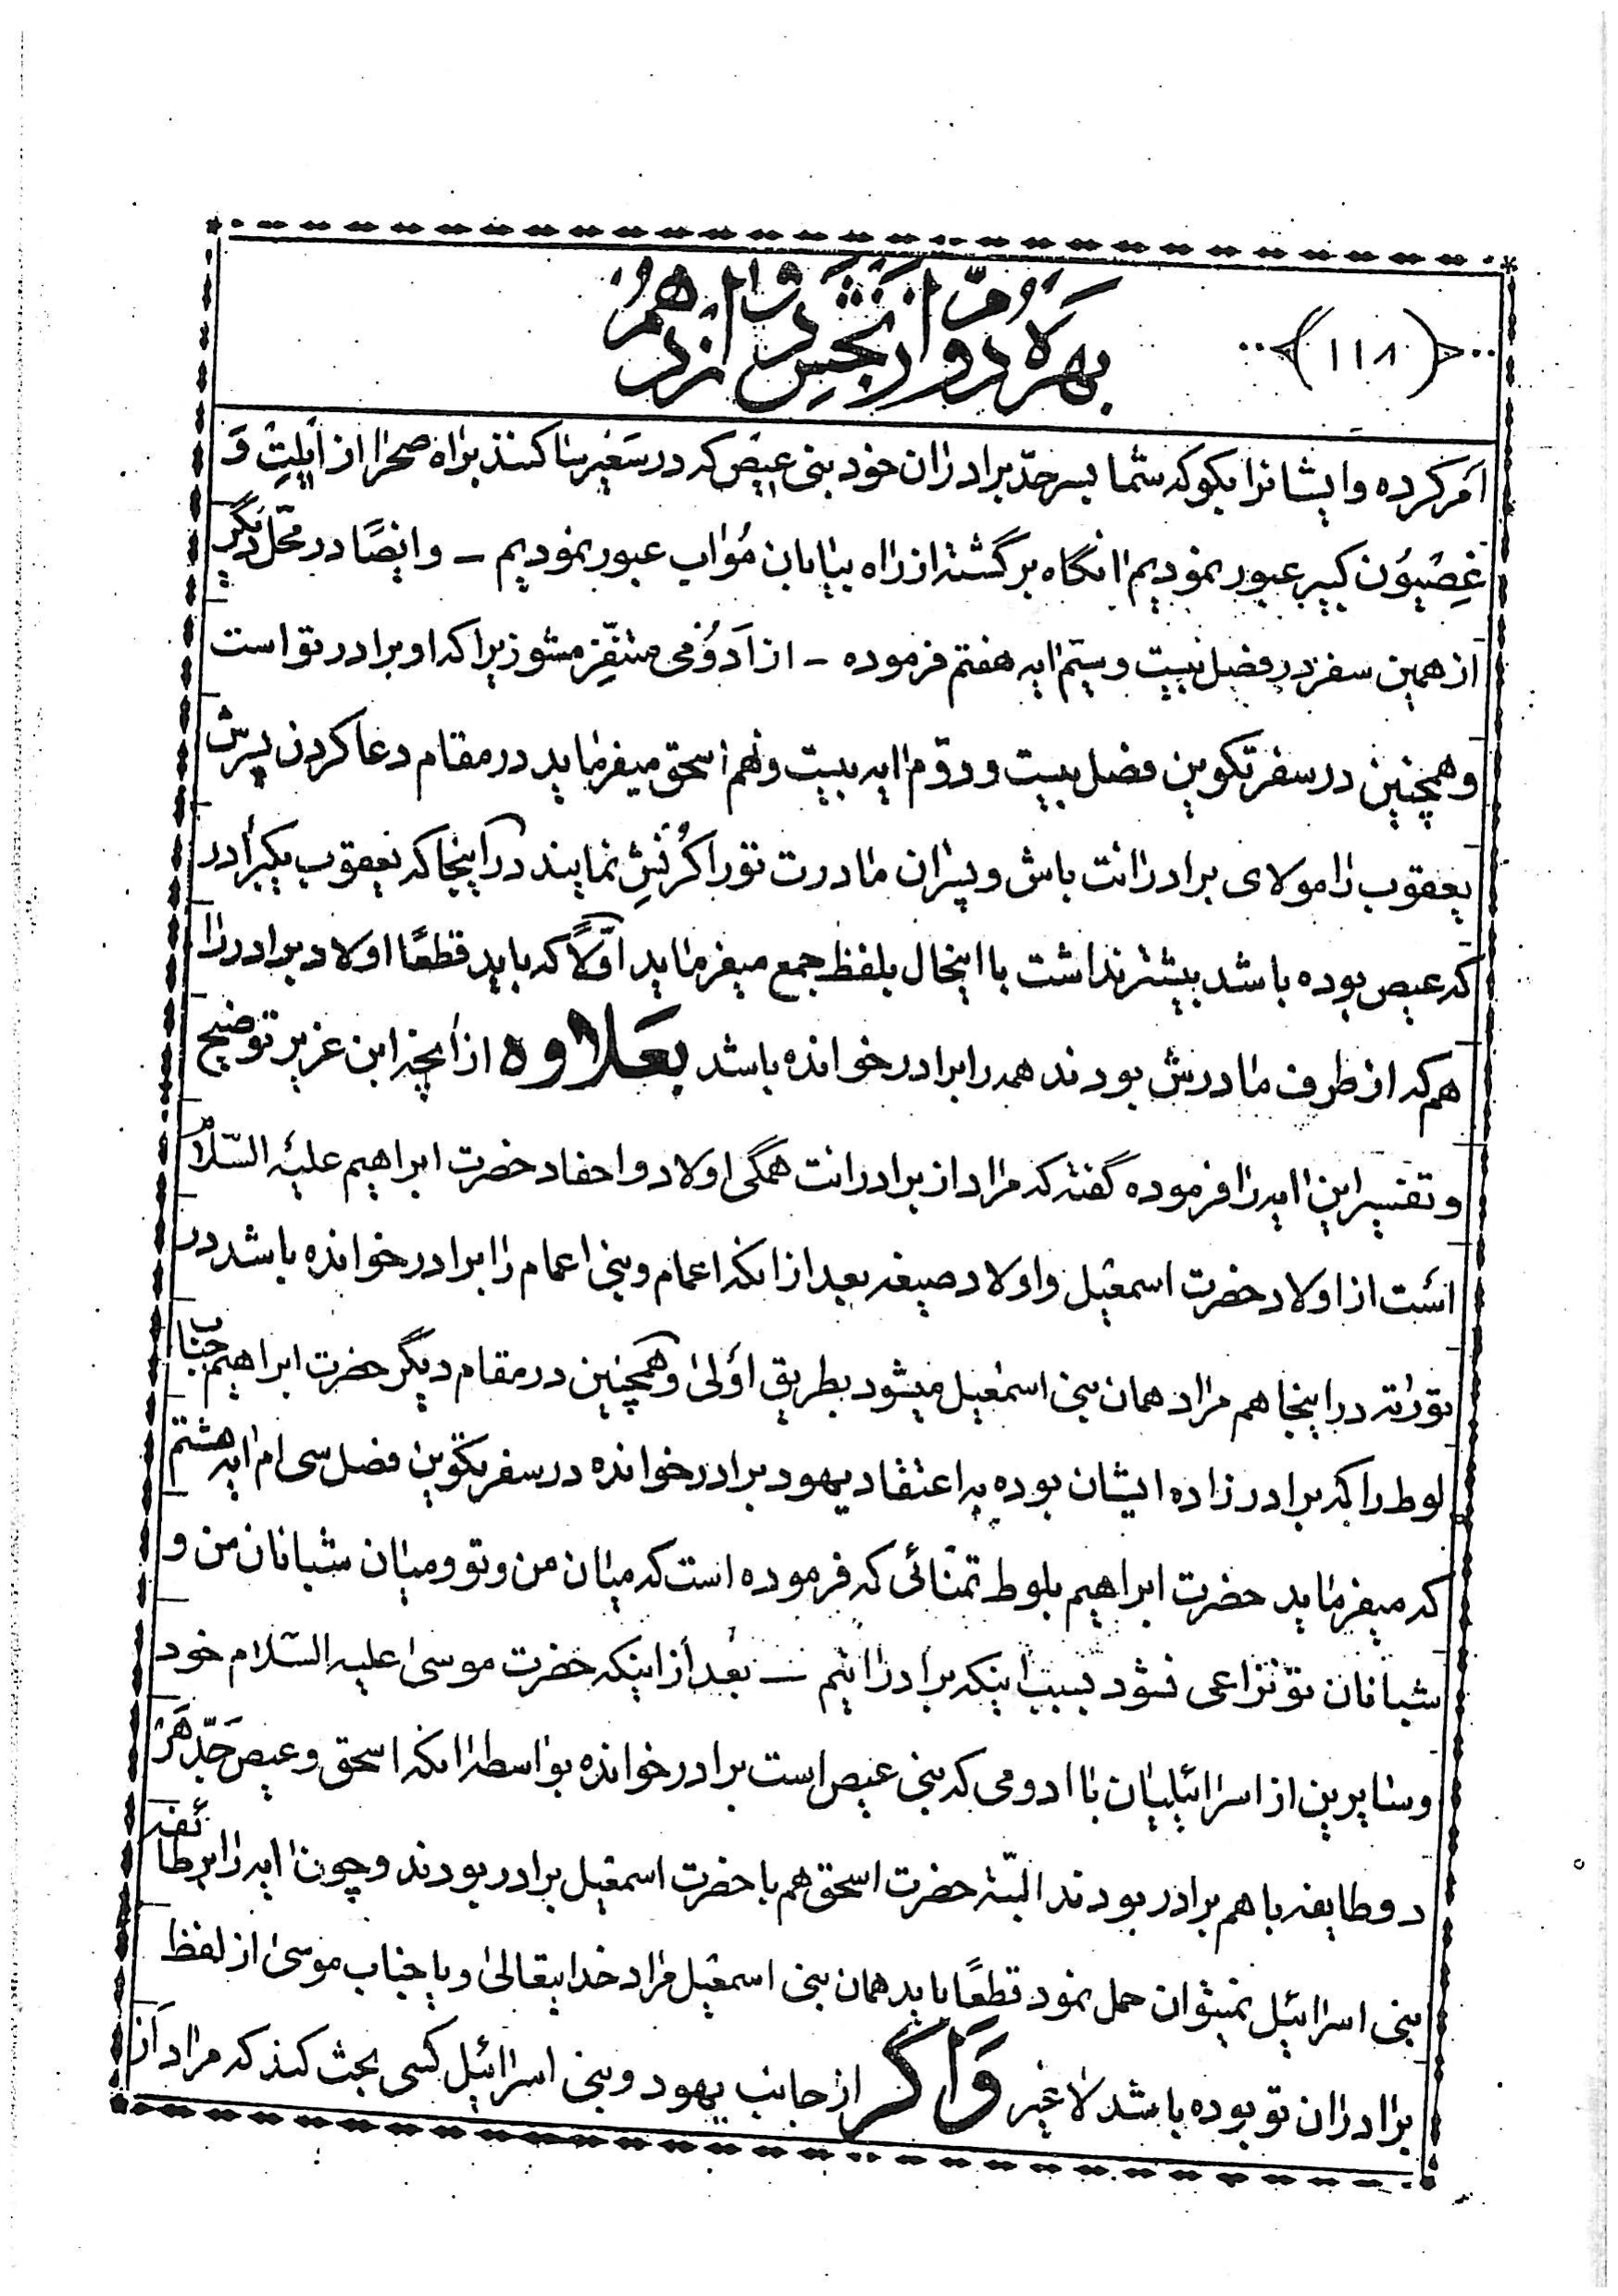 (۱۱۸)
بهرهٔ دوم از بخش دوازدهم
امر کرده و ایشانرا بگو که شما بسرحدّ برادران خود بنی عیص که در سَعِیر ساکنند براه صحرا از اَیلِتْ وَ
غِصْیُوُن کیبر عبور نمودیم انگاه برگشته از راه بیابان مُواب عبور نمودیم – و ایضًا در محّل دیگر
از همین سفر در فصل بیست و سیّم ایه هفتم فرموده – از اَدوُمی متنفّر مشو زیرا که او برادر تو است
و همچنین در سفر تکوین فصل بیست و دوّم ایه بیست و نهم اسحق میفرماید در مقام دعا کردن پسرش
یعقوب را مولای برادرانت باش و پسران مادرت تو را کُرنِش نمایند در اینجا که یعقوب یکبرادر
که عیص بوده باشد بیشتر نداشت با اینحال بلفظ جمع میفرماید اوّلاً که باید قطعًا اولاد برادر را
هم که از طرف مادرش بودند همه را برادر خوانده باشد بعَلاوه از آنچه ابن عزیر توضیح
و تفسیر این ایه را فرموده گفته که مراد از برادرانت همگی اولاد و احفاد حضرت ابراهیم علیه السّلام
است از اولاد حضرت اسمعیل و اولاد صیغه بعد از انکه اعمام و بنی اعمام را برادر خوانده باشد در
توراته در اینجا هم مراد همان بنی اسمعیل میشود بطریق اَولیٰ و همچنین در مقام دیگر حضرت ابراهیم جناب
لوط را که برادرزاده ایشان بوده به اعتقاد یهود برادر خوانده در سفر تکوین فصل سی ام ایه هشتم
که میفرماید حضرت ابراهیم بلوط تمنّائی که فرموده است که میان من و تو و میان شبانان من و
شبانان تو نزاعی نشود بسبب اینکه برادرانیم – بعد از اینکه حضرت موسیٰ علیه السّلام خود
و سایرین از اسرائیلیان با ادومی که بنی عیص است برادر خوانده بواسطه انکه اسحق و عیص جَدّ هَر
دو طایفه با هم برادر بودند البتّه حضرت اسحق هم با حضرت اسمعیل برادر بودند و چون ایه را بر طائفه
بنی اسرائیل نمیتوان حمل نمود قطعًا باید همان بنی اسمعیل مراد خدایتعالیٰ و یا جناب موسیٰ از لفظ
برادران تو بوده باشد لا غیر وَاَگر از جانب یهود و بنی اسرائیل کسی بحث کند که مراد از